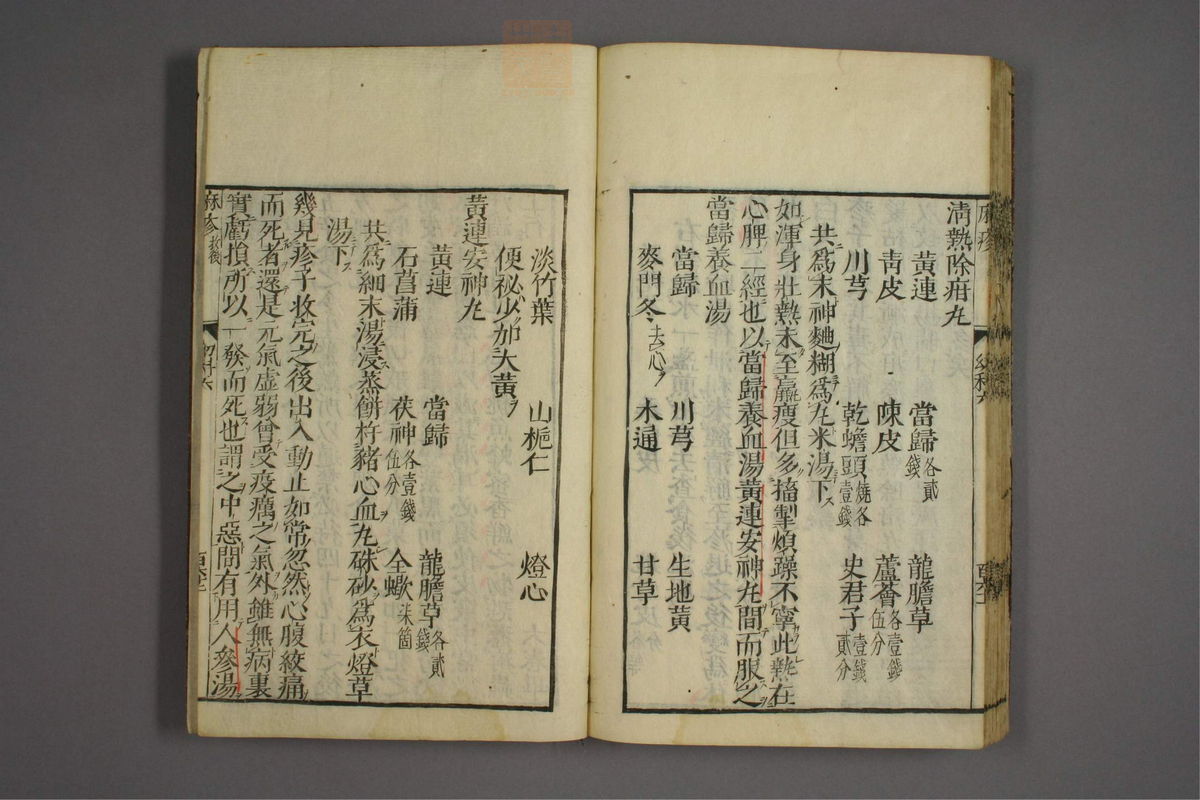 淸熱除疳丸
黃連 當歸各貳錢 龍膽草
靑皮 陳皮 蘆薈各壹錢伍分
川芎 乾蟾頭燒各壹錢 史君子壹錢貳分
共爲末神麯糊爲丸米湯下ス
如渾身壯熱未至羸瘦但多搐掣煩躁不寧此熱在
心脾二經也以當歸養血湯黃連安神丸間而服之
當歸養血湯
當歸 川芎 生地黃
麥門冬去心ヲ 木通 甘草
淡竹葉 山梔仁 燈心
便秘少加大黃ヲ
黃連安神丸
黃連 當歸 龍膽草各貳錢
石菖蒲 茯神各壹錢伍分 全蠍柒箇
共爲細末湯浸蒸餅杵豬心血丸硃砂爲衣燈草
湯下ス
幾見疹子收完之後出入動止如常忽然心腹絞痛
而死者還是元氣虛弱曾受疫癘之氣外雖無病裏
實虧損所以一發而死也謂之中惡間有用人參湯
麻疹